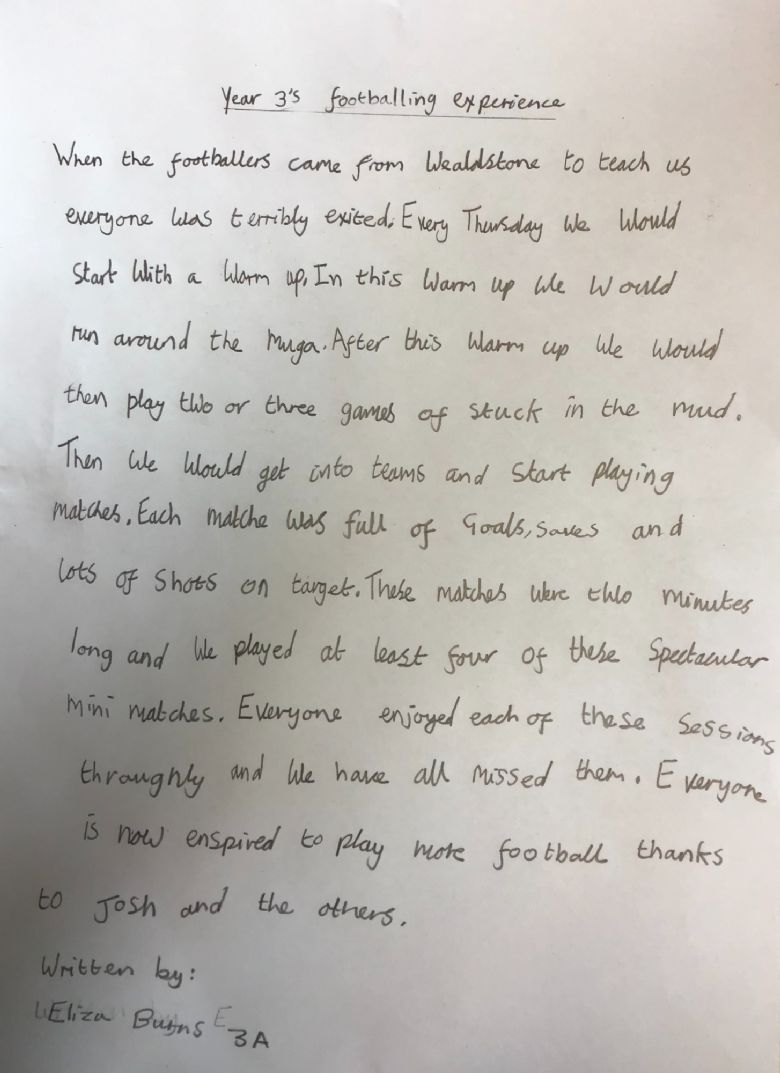 Year 3's footballing experience
When the footballers came from Wealdstone to teach us
everyone was terribly exited. Every Thursday we would
start with a warm up, In this warm up we would
run around the muga. After this warm up we would
then play two or three games of stuck in the mud.
Then we would get into teams and start playing
matches. Each matche was full of Goals, saves and
lots of shots on target. These matches were two minutes
long and we played at least four of these spectacular
mini matches. Everyone enjoyed each of these sessions
throughly and we have all missed them. Everyone
is now enspired to play more football thanks
to Josh and the others.
Written by:
Eliza Burns
3A